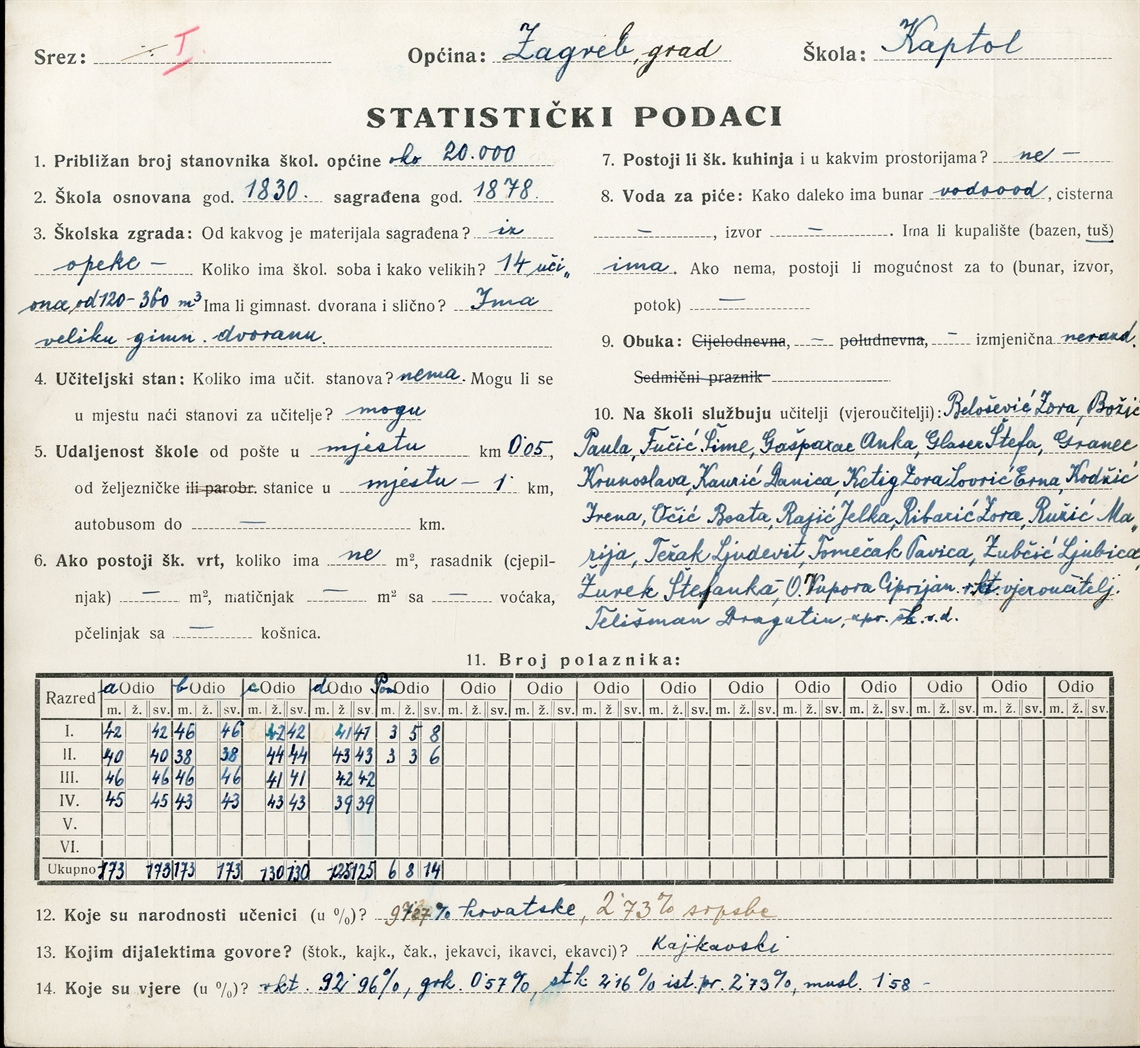 Srez: I. Općina: Zagreb, grad Škola: Kaptol
STATISTIČKI PODACI
1. Približan broj stanovnika škol. općine oko 20.000
2. Škola osnovana god. 1830. sagrađena god. 1878.
3. Školska zgrada: Od kakvog je materijala sagrađena? iz
opeke – Koliko ima škol. soba i kako velikih? 14 uči„
ona, od 120-360 m³ Ima li gimnast. dvorana i slično? Ima
veliku gimn. dvoranu.
4. Učiteljski stan: Koliko ima učit. stanova? nema. Mogu li se
u mjestu naći stanovi za učitelje? mogu
5. Udaljenost škole od pošte u mjestu km 0'05,
od željezničke ili parobr. stanice u mjestu – 1 km,
autobusom do — km.
6. Ako postoji šk. vrt, koliko ima ne m², rasadnik (cjepil-
njak) — m², matičnjak — m² sa — voćaka,
pčelinjak sa — košnica.
7. Postoji li šk. kuhinja i u kakvim prostorijama? ne –
8. Voda za piće: Kako daleko ima bunar vodovod, cisterna
–, izvor –. Ima li kupalište (bazen, tuš)
ima. Ako nema, postoji li mogućnost za to (bunar, izvor,
potok) —
9. Obuka: Cijelodnevna, – poludnevna, – izmjenična
Sedmični praznik
10. Na školi službuju učitelji (vjeroučitelji): Belošević Zora, Božić
Paula, Fučić Šime, Gašparac Anka, Glaser Štefa, Granec
Krunoslava, Kaurić Danica, Ketig Zora Lovrić Erna, Kodžić
Irena, Očić Beata, Rajić Jelka, Ribarić Zora, Ružić Ma„
rija, Težak Ljudevit, Tomečak Pavica, Zubčić Ljubica,
Žurek Štefanka, O. Vupora Ciprijan rkt. vjeroučitelj.
Telišman Dragutin, upr. šk. v.d.
11. Broj polaznika:
Razred a Odio b Odio c Odio d Odio Pom Odio Odio Odio Odio Odio Odio Odio Odio Odio Odio Odio
m. ž. sv. m. ž. sv. m. ž. sv. m. ž. sv. m. ž. sv. m. ž. sv. m. ž. sv. m. ž. sv. m. ž. sv. m. ž. sv. m. ž. sv. m. ž. sv. m. ž. sv. m. ž. sv. m. ž. sv.
I. 42 42 46 46 42 42 41 41 3 5 8
II. 40 40 38 38 44 44 43 43 3 3 6
III. 46 46 46 46 41 41 42 42
IV. 45 45 43 43 43 43 39 39
V.
VI.
Ukupno 173 173 173 173 130 130 125 125 6 8 14
12. Koje su narodnosti učenici (u %)? 97'27% hrvatske, 2'73% srpske
13. Kojim dijalektima govore? (štok., kajk., čak., jekavci, ikavci, ekavci)? Kajkavski
14. Koje su vjere (u %)? rkt. 92'96%, grk. 0'57%, stk 2'16% ist. pr. 2'73%, musl. 1'58 –